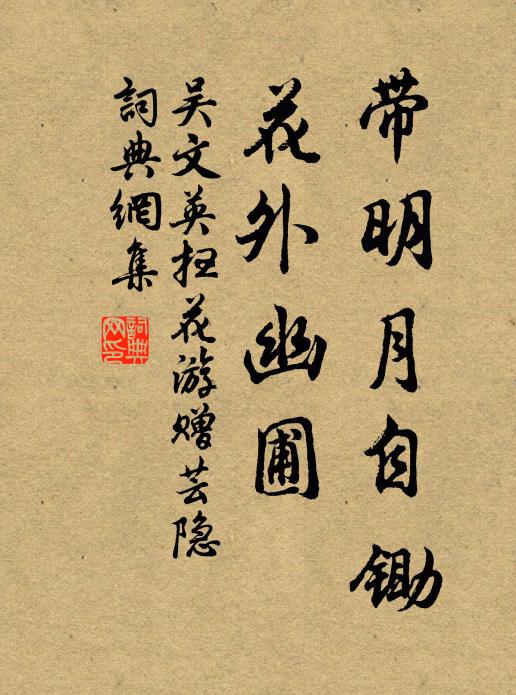 带明月自锄
花外幽圃
吴文英扫花游赠芸隐
詞典網集
詞典網印